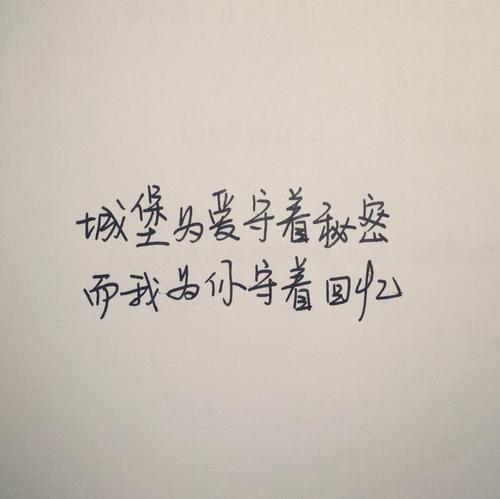 城堡为爱守着秘密
而我为你守着回忆